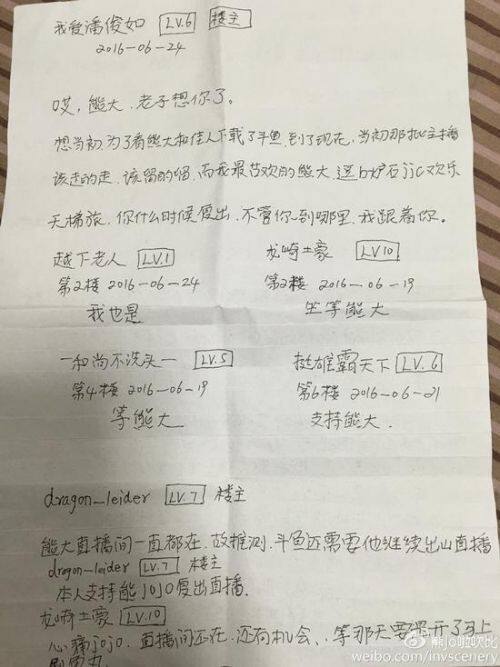 我爱潘俊如 LV.6 楼主
2016-06-24
哎，熊大，老子想你了。
想当初，为了看熊大和佳人下载了斗鱼，到了现在，当初那批主播
该走的走，该留的留，而我最喜欢的熊大，这b炉石jjc欢乐
天梯旅，你什么时候复出，不管你到哪里，我跟着你。
越下老人 LV.1
第2楼 2016-06-24
我也是
龙崎土豪 LV10
第2楼 2016-06-19
坐等熊大
一和尚不洗头一 LV.5
第4楼 2016-06-19
等熊大
挺雄霸天下 LV.6
第6楼 2016-06-21
支持熊大.
dragon_leider LV.7 楼主
熊大直播间一直都在，故推测，斗鱼还需要他继续出山直播
dragon_leider LV.7 楼主
本人支持熊JOJO复出直播.
龙崎土豪 LV.10
心痛jojo，直播间还在，还有机会、等那天要是开了马上
weibo.com/invscenery